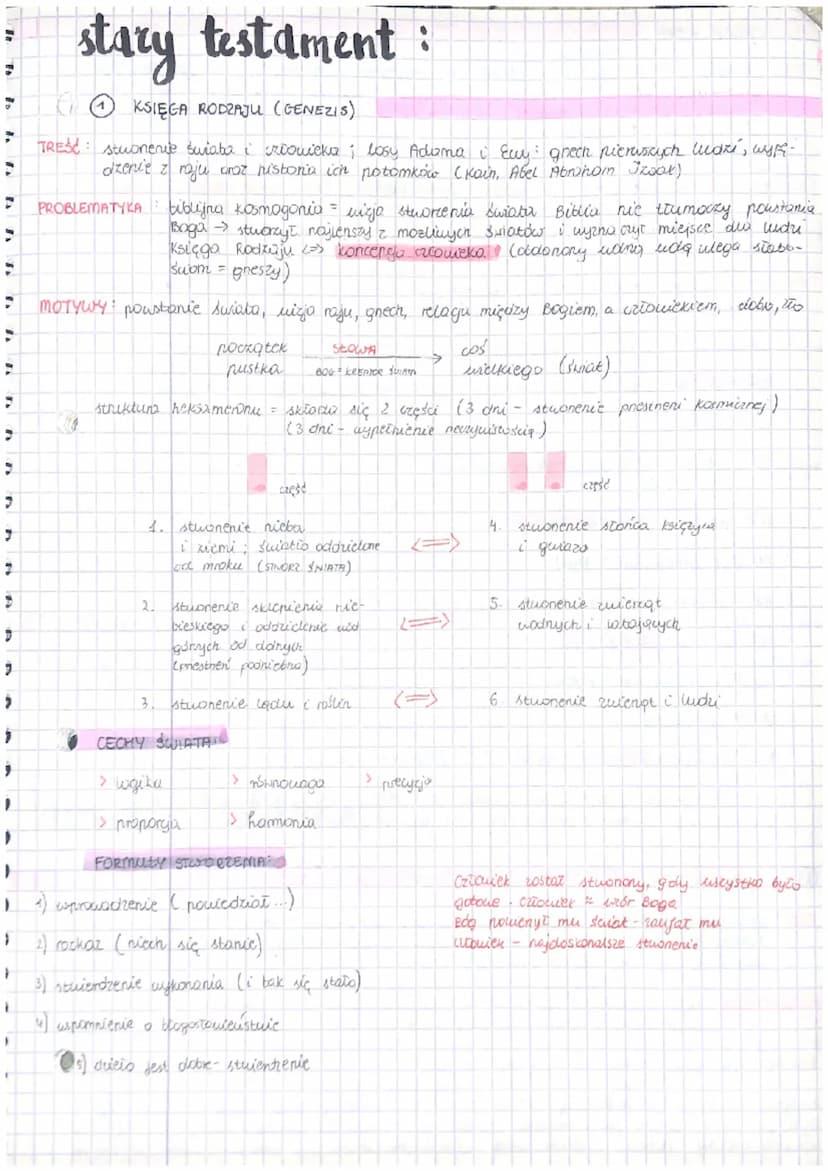 stary testament :
① KSIĘGA RODZAJU (GENEZIS)
TREŚĆ : stworzenie świata i człowieka ; losy Adama i Ewy : grzech pierwszych ludzi, wypę-
dzenie z raju oraz historia ich potomków (Kain, Abel Abraham Izaak)
PROBLEMATYKA : biblijna kosmogonia = wizja stworzenia świata Biblia nic tłumaczy powstania
Boga → stworzył najlepszy z możliwych światów i wyznaczył miejsce dla ludzi
Księga Rodzaju <=> koncepcja człowieka (obdarzony wolną wolą ulega słabo-
ściom = grzeszy)
MOTYWY : powstanie świata, wizja raju, grzech, relacju między Bogiem, a człowiekiem, dobro, zło
początek SŁOWA coś
pustka BÓG = KREATOR ŚWIATA → wielkiego (świat)
struktura heksameronu = składa się 2 części (3 dni - stworzenie przestrzeni kosmicznej)
(3 dni - wypełnienie rzeczywistością)
część część
1. stworzenie nieba 4. stworzenie słońca księżyca
i ziemi ; światło oddzielone <=> i gwiazd
od mroku (STWÓRZ ŚWIATA)
2. stworzenie sklepienia nie- 5. stworzenie zwierząt
bieskiego i oddzielenie wód <=> wodnych i latających
górnych od dolnych
(przestrzeń podniebna)
3. stworzenie lądu i roślin <=> 6 stworzenie zwierząt i ludzi
CECHY ŚWIATA:
> logika > równowaga > precyzja
> proporcja > harmonia
FORMUŁY STWORZENIA:
Człowiek został stworzony, gdy wszystko było
1) wprowadzenie ( powiedział...) gotowe . człowiek ≈ wzór Boga
Bóg powierzył mu świat - zaufał mu
2) rozkaz (niech się stanie) człowiek - najdoskonalsze stworzenie
3) stwierdzenie wykonania (i tak się stało)
4) wspomnienie o błogosławieństwie
5) dzieło jest dobre - stwierdzenie